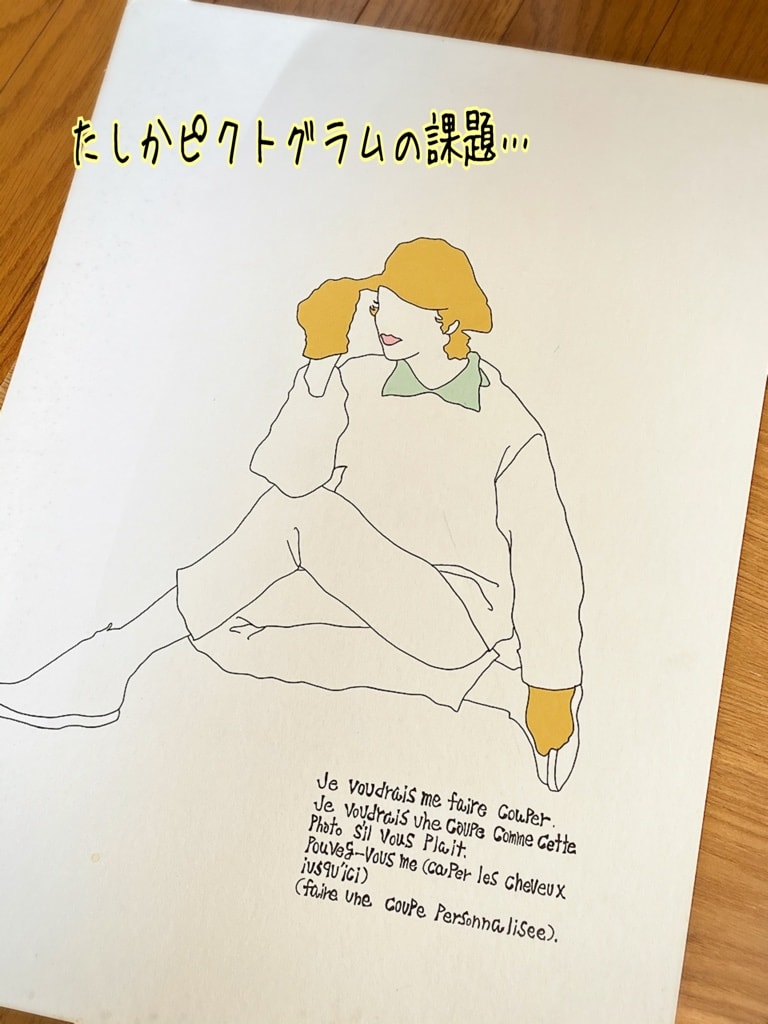 たしかピクトグラムの課題…
Je voudrais me faire couper.
Je voudrais une coupe comme cette
Photo s'il vous plait.
Pouveg-vous me (couper les cheveux
iusqu'ici)
(faire une coupe personnalisee).